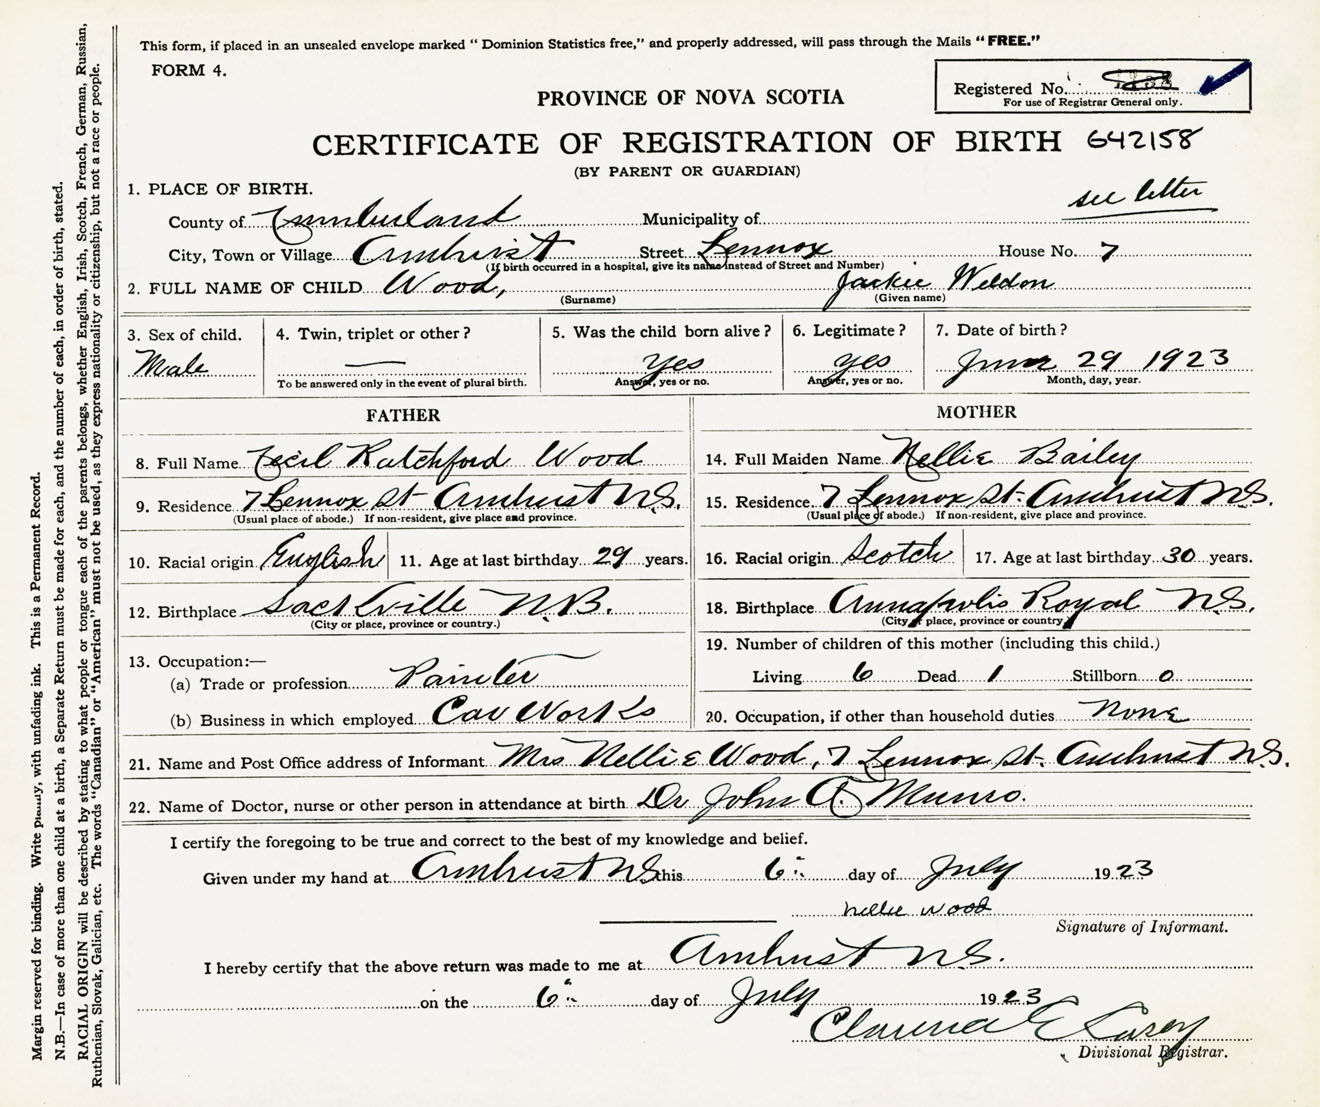 This form, if placed in an unsealed envelope marked “ Dominion Statistics free,” and properly addressed, will pass through the Mails “ FREE.”
FORM 4.
Registered No.
For use of Registrar General only.
PROVINCE OF NOVA SCOTIA
CERTIFICATE OF REGISTRATION OF BIRTH 642158
(BY PARENT OR GUARDIAN)
see letter
1. PLACE OF BIRTH.
County of Cumberland Municipality of
City, Town or Village Amherst Street Lennox House No. 7
(If birth occurred in a hospital, give its name instead of Street and Number)
2. FULL NAME OF CHILD Wood, Jackie Weldon
(Surname) (Given name)
3. Sex of child. 4. Twin, triplet or other ? 5. Was the child born alive ? 6. Legitimate ? 7. Date of birth ?
Male — Yes Yes June 29 1923
To be answered only in the event of plural birth. Answer, yes or no. Answer, yes or no. Month, day, year.
FATHER MOTHER
8. Full Name Cecil Ratchford Wood 14. Full Maiden Name Nellie Bailey
9. Residence 7 Lennox St- Amherst N.S. 15. Residence 7 Lennox St- Amherst N.S.
(Usual place of abode.) If non-resident, give place and province. (Usual place of abode.) If non-resident, give place and province.
10. Racial origin English 11. Age at last birthday 29 years. 16. Racial origin Scotch 17. Age at last birthday 30 years.
12. Birthplace Sackville N.B. 18. Birthplace Annapolis Royal N.S.
(City or place, province or country.) (City or place, province or country)
19. Number of children of this mother (including this child.)
13. Occupation:—
(a) Trade or profession Painter Living 6 Dead 1 Stillborn 0
(b) Business in which employed Car Works 20. Occupation, if other than household duties None
21. Name and Post Office address of Informant Mrs Nellie Wood, 7 Lennox St. Amherst N.S.
22. Name of Doctor, nurse or other person in attendance at birth Dr John A. Munro.
I certify the foregoing to be true and correct to the best of my knowledge and belief.
Given under my hand at Amherst N.S. this 6 day of July 1923
Nellie Wood
Signature of Informant.
I hereby certify that the above return was made to me at Amherst N.S.
on the 6 day of July 1923
Clarence E Casey
Divisional Registrar.
Margin reserved for binding. Write plainly, with unfading ink. This is a Permanent Record.
N.B.—In case of more than one child at a birth, a Separate Return must be made for each, and the number of each, in order of birth, stated.
RACIAL ORIGIN will be described by stating to what people or tongue each of the parents belongs, whether English, Irish, Scotch, French, German, Russian,
Ruthenian, Slovak, Galician, etc. The words “Canadian” or “American” must not be used, as they express nationality or citizenship, but not a race or people.